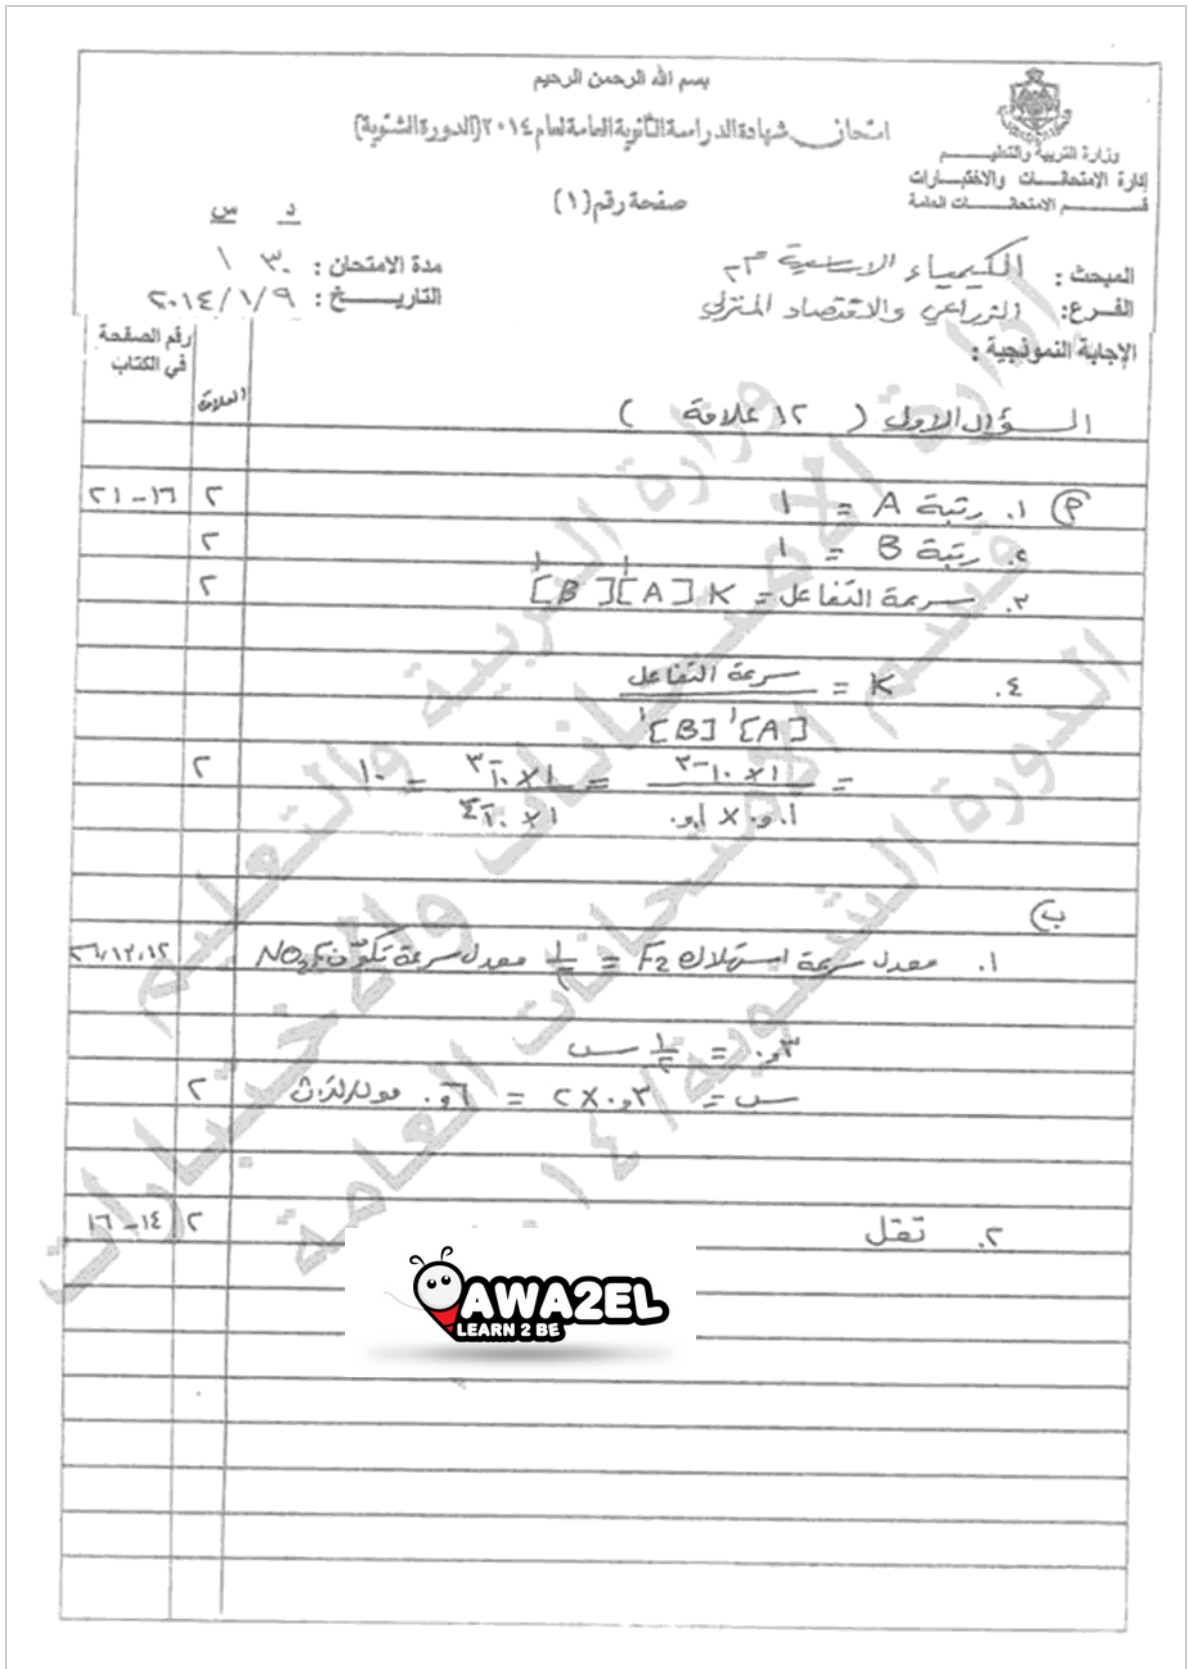 بسم الله الرحمن الرحيم
امتحان شهادة الدراسة الثانوية العامة لعام ٢٠١٤ (الدورة الشتوية)
وزارة التربية والتعليم
إدارة الامتحانات والاختبارات
قسم الامتحانات العامة
صفحة رقم (١)
د س
المبحث : الكيمياء الاساسية م٣
مدة الامتحان : ٣٠ ١
الفرع: الزراعي والاقتصاد المنزلي
التاريخ : ٢٠١٤/١/٩
الإجابة النموذجية :
رقم الصفحة في الكتاب
العلامة
السؤال الاول ( ١٢ علامة )
P) ١. رتبة A = ١ ٢ ١٦-٢١
٢. رتبة B = ١ ٢
٣. سرعة التفاعل = K [A]¹ [B]¹ ٢
٤. K = سرعة التفاعل
[A]¹ [B]¹
= ١×١٠⁻٣ = ١×١٠⁻٣ = ١٠ ٢
٠,١ × ٠,١ ١×١٠⁻٤
ب)
١. معدل سرعة استهلاك F2 = ١/٢ معدل سرعة تكوّن NO2F ٢٦،١٣،١٢
٠,٣ = ١/٢ س
س = ٠,٣ × ٢ = ٠,٦ مول/لتر.ث ٢
٢. تقل ٢ ١٤-١٦
AWA2EL
LEARN 2 BE
وزارة التربية والتعليم
إدارة الامتحانات والاختبارات
قسم الامتحانات العامة